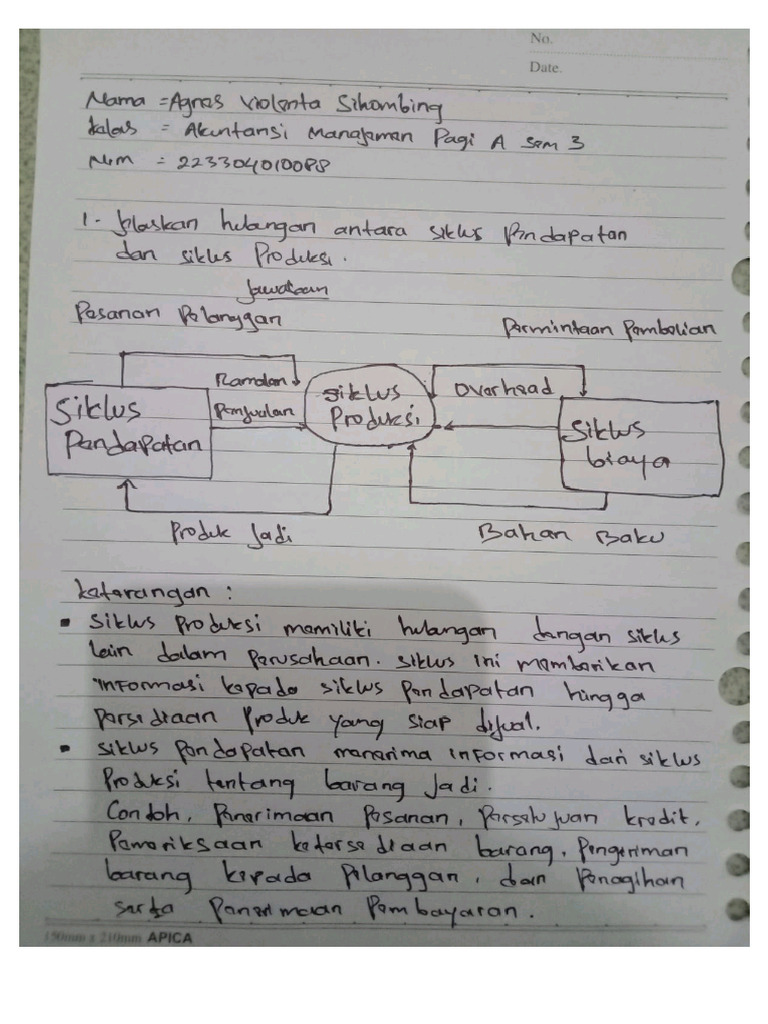 No.
Date.
Nama = Agnes Violenta Sihombing
Kelas = Akuntansi Manajemen Pagi A Sem 3
Nim = 223304010088
1. Jelaskan hubangan antara siklus Pendapatan
dan siklus Produksi.
Jawaban
Pesanan Pelanggan
Permintaan Pembelian
Ramalan
Penjualan
Siklus
Pendapatan
Siklus
Produksi
Overhead
Siklus
biaya
Produk Jadi
Bahan Baku
Keterangan :
• Siklus Produksi memiliki hubangan dengan siklus
lain dalam perusahaan. siklus ini memberikan
informasi kepada siklus pendapatan hingga
persediaan Produk yang siap dijual.
• Siklus pendapatan menerima informasi dari siklus
Produksi tentang barang Jadi.
Condoh, Penerimaan Pesanan, Persetujuan kredit,
Pemeriksaan ketersediaan barang, Pengeriman
barang kepada Pelanggan, dan Penagihan
serta Penerimaan Pembayaran.
150mm x 210mm APICA